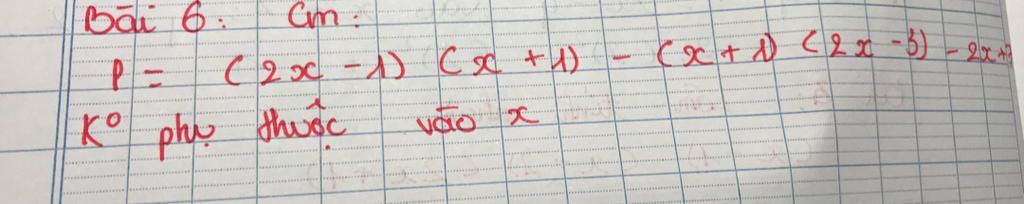 Bài 6: Cm:
P = (2x - 1) (x + 1) - (x + 1) (2x - 3) - 2x +
K° phụ thuộc vào x